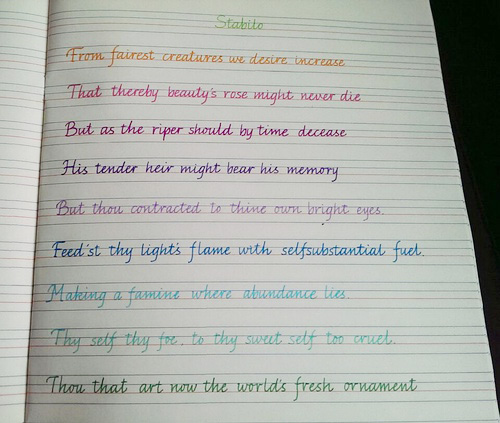 Stabilo
From fairest creatures we desire increase
That thereby beauty's rose might never die
But as the riper should by time decease
His tender heir might bear his memory
But thou contracted to thine own bright eyes.
Feed'st thy light's flame with selfsubstantial fuel.
Making a famine where abundance lies.
Thy self thy foe, to thy sweet self too cruel.
Thou that art now the world's fresh ornament